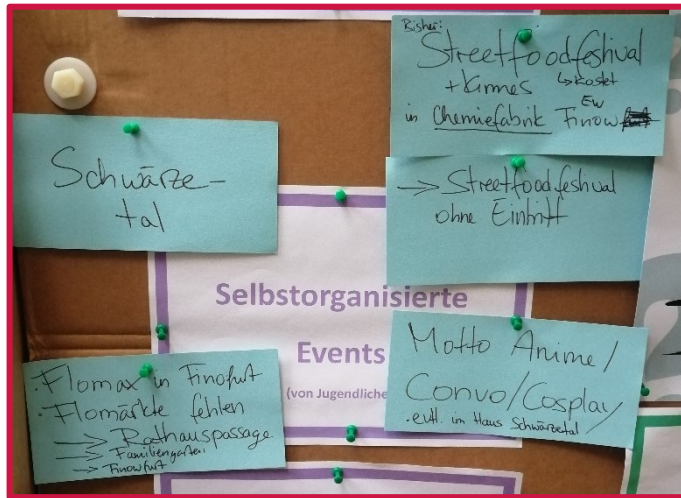 Bisher:
Streetfoodfestival
+ Kirmes ↳ kostet
EW
in Chemiefabrik Finow
Schwärze-
tal
→ Streetfoodfestival
ohne Eintritt
Selbstorganisierte
Events
(von Jugendliche
Motto Anime/
Convo/Cosplay
• evtl. im Haus Schwärzetal
• Flomax in Finofurt
• Flomärkte fehlen
→ Rathauspassage
→ Familiengarten
→ Finowfurt